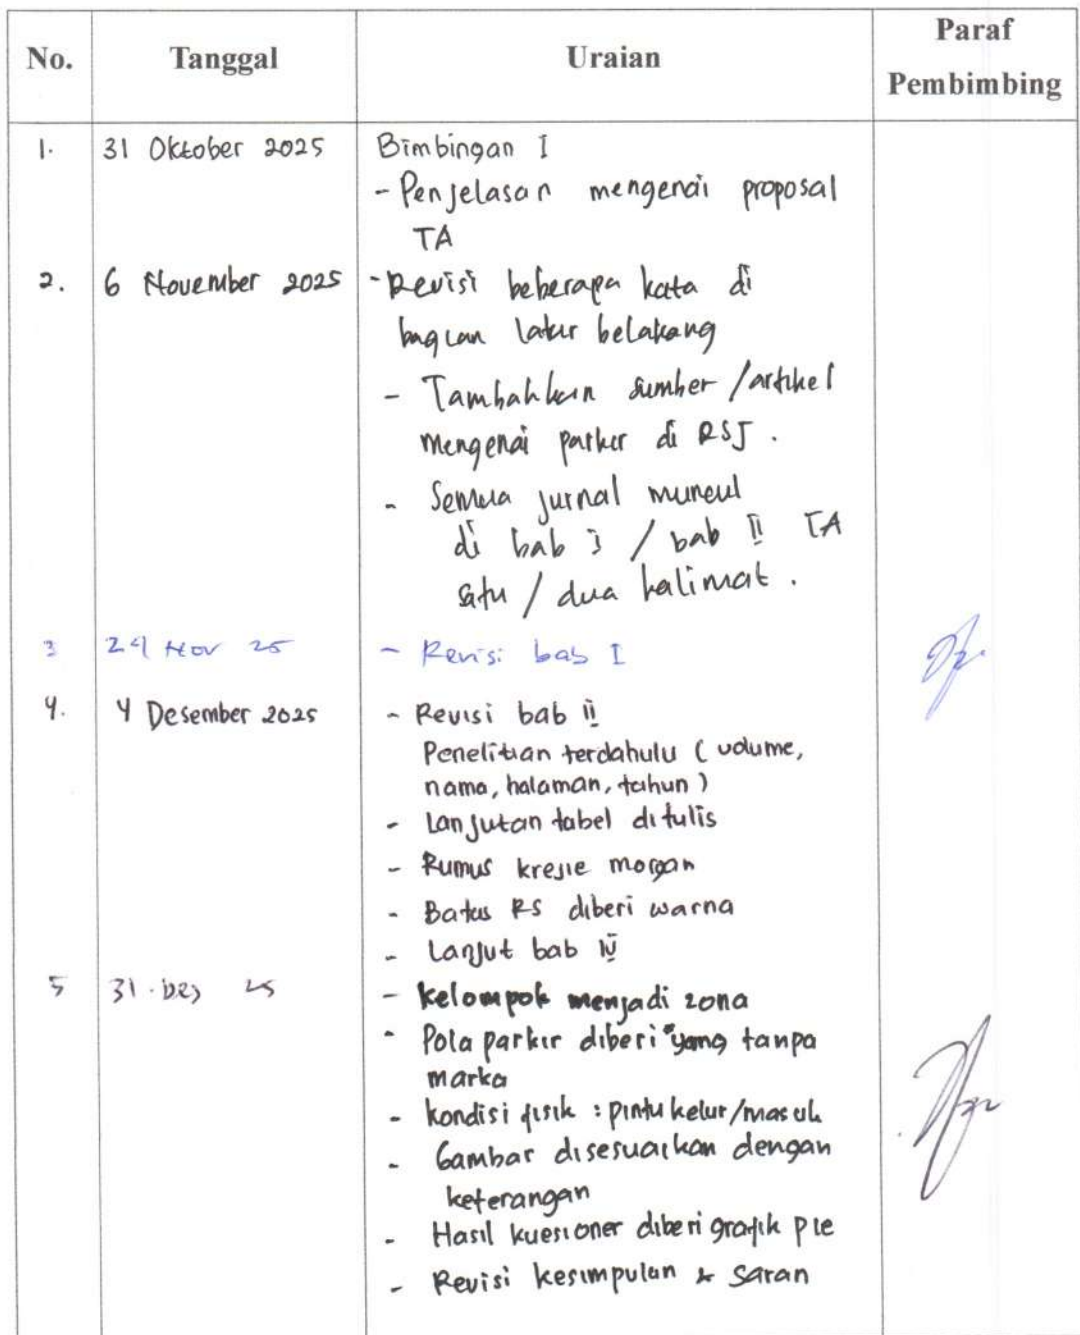 No. Tanggal Uraian Paraf Pembimbing
1. 31 Oktober 2025 Bimbingan I
- Penjelasan mengenai proposal
TA
2. 6 November 2025 - Revisi beberapa kata di
bagian latar belakang
- Tambahkan sumber /artikel
mengenai parkir di RSJ.
- Semua jurnal muncul
di bab / bab II TA
satu / dua kalimat.
3 24 Nov 25 - Revisi bab I
4. 4 Desember 2025 - Revisi bab II
Penelitian terdahulu (volume,
nama, halaman, tahun)
- Lanjutan tabel ditulis
- Rumus krejie morgan
- Batas RS diberi warna
- Lanjut bab IV
5 31 Des 25 - Kelompok menjadi zona
- Pola parkir diberi "yang tanpa
marka
- Kondisi fisik : pintu kelur/masuk
- Gambar disesuaikan dengan
keterangan
- Hasil kuesioner diberi grafik pie
- Revisi kesimpulan & saran